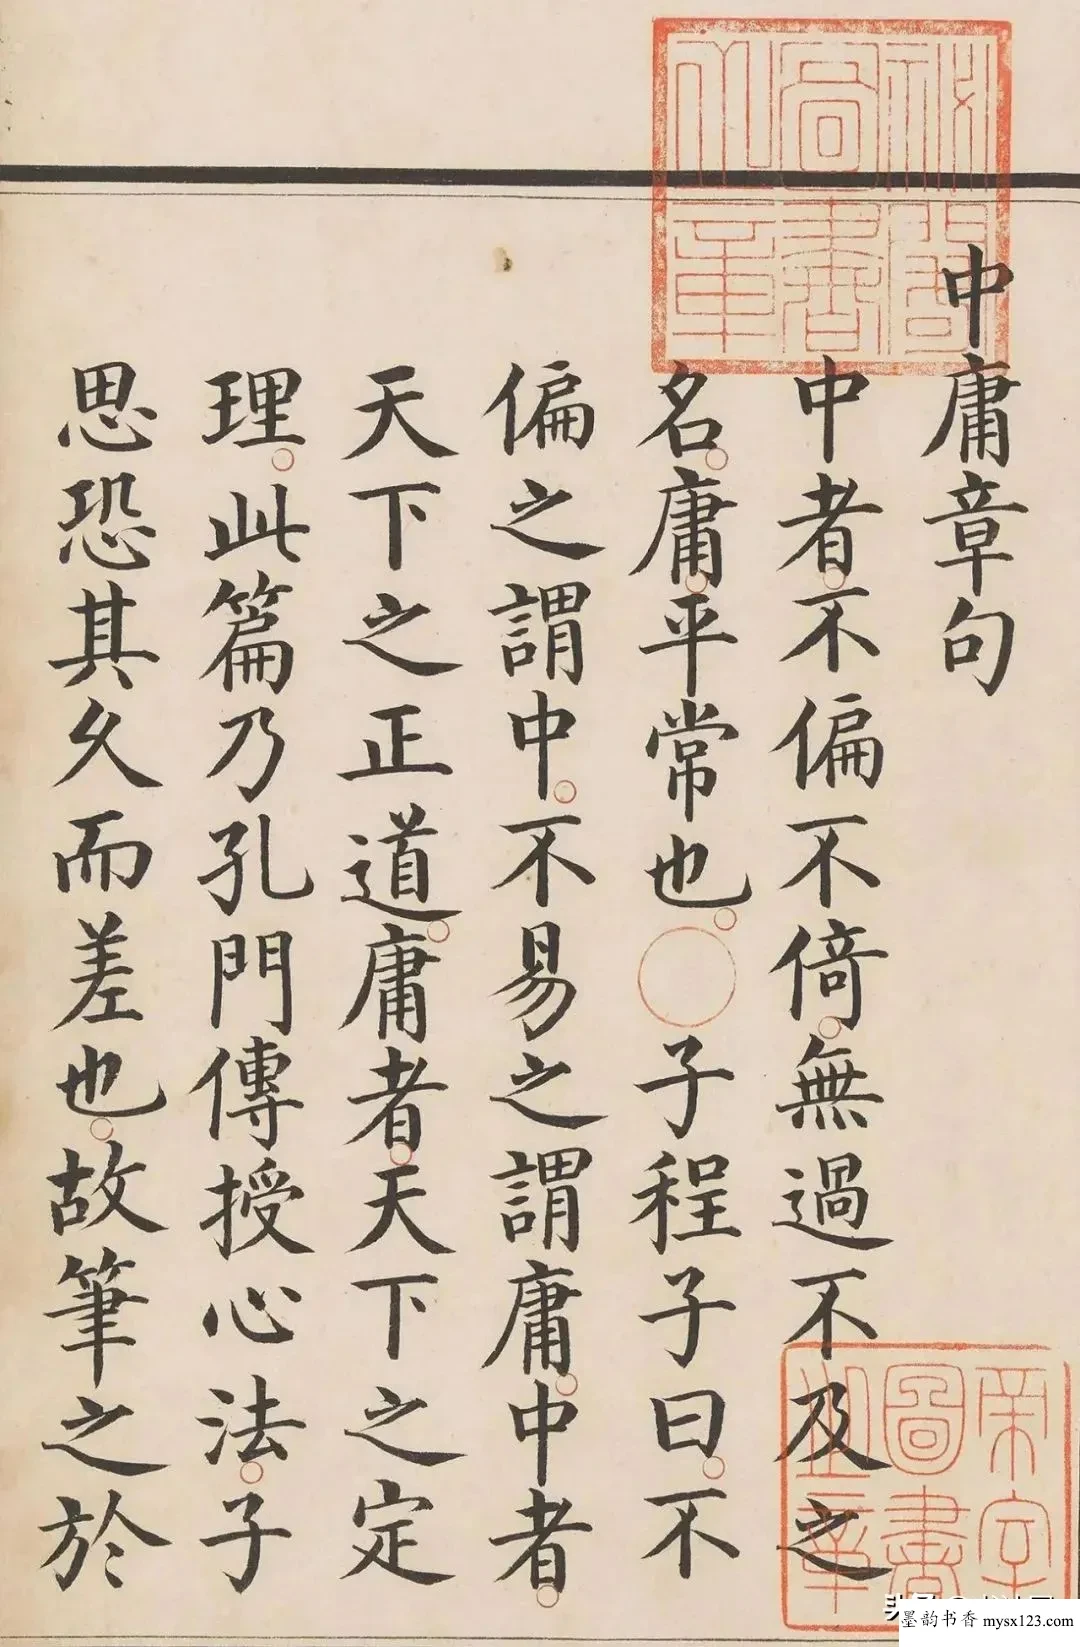 中庸章句
中者不偏不倚無過不及之
名庸平常也○子程子曰不
偏之謂中不易之謂庸中者
天下之正道庸者天下之定
理此篇乃孔門傳授心法子
思恐其久而差也故筆之於
墨韵书香 mysx123.com